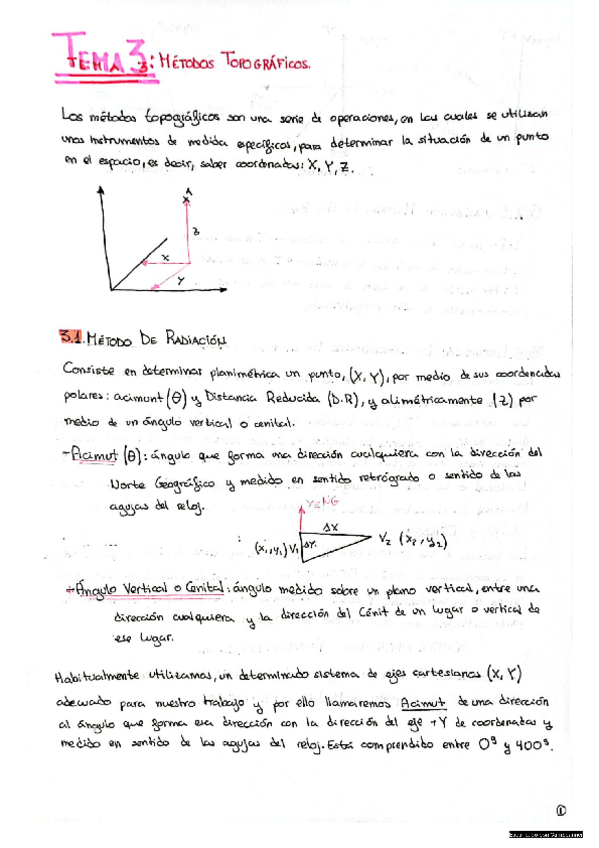 TEMA 3: MÉTODOS TOPOGRÁFICOS.
Los métodos topográficos son una serie de operaciones, en las cuales se utilizan
unos instrumentos de medida específicos, para determinar la situación de un punto
en el espacio, es decir, saber coordenadas: X, Y, Z.
A
X
Z
X
Y
3.1. MÉTODO DE RADIACIÓN
Consiste en determinar planimétrica un punto, (X, Y), por medio de sus coordenadas
polares: acimunt (θ) y Distancia Reducida (D.R), y altimétricamente (Z) por
medio de un ángulo vertical o cenital.
- Acimut (θ): ángulo que forma una dirección cualquiera con la dirección del
Norte Geográfico y medido en sentido retrógrado o sentido de las
agujas del reloj.
Y=NG
ΔX
(x1, y1) V1 ΔY
V2 (x2, y2)
- Ángulo Vertical o Cenital: ángulo medido sobre un plano vertical, entre una
dirección cualquiera y la dirección del Cénit de un lugar o vertical de
ese lugar.
Habitualmente utilizamos, un determinado sistema de ejes cartesianos (X, Y)
adecuado para nuestro trabajo y por ello llamaremos Acimut de una dirección
al ángulo que forma esa dirección con la dirección del eje +Y de coordenadas y
medido en sentido de las agujas del reloj. Está comprendido entre 0g y 400g.
1